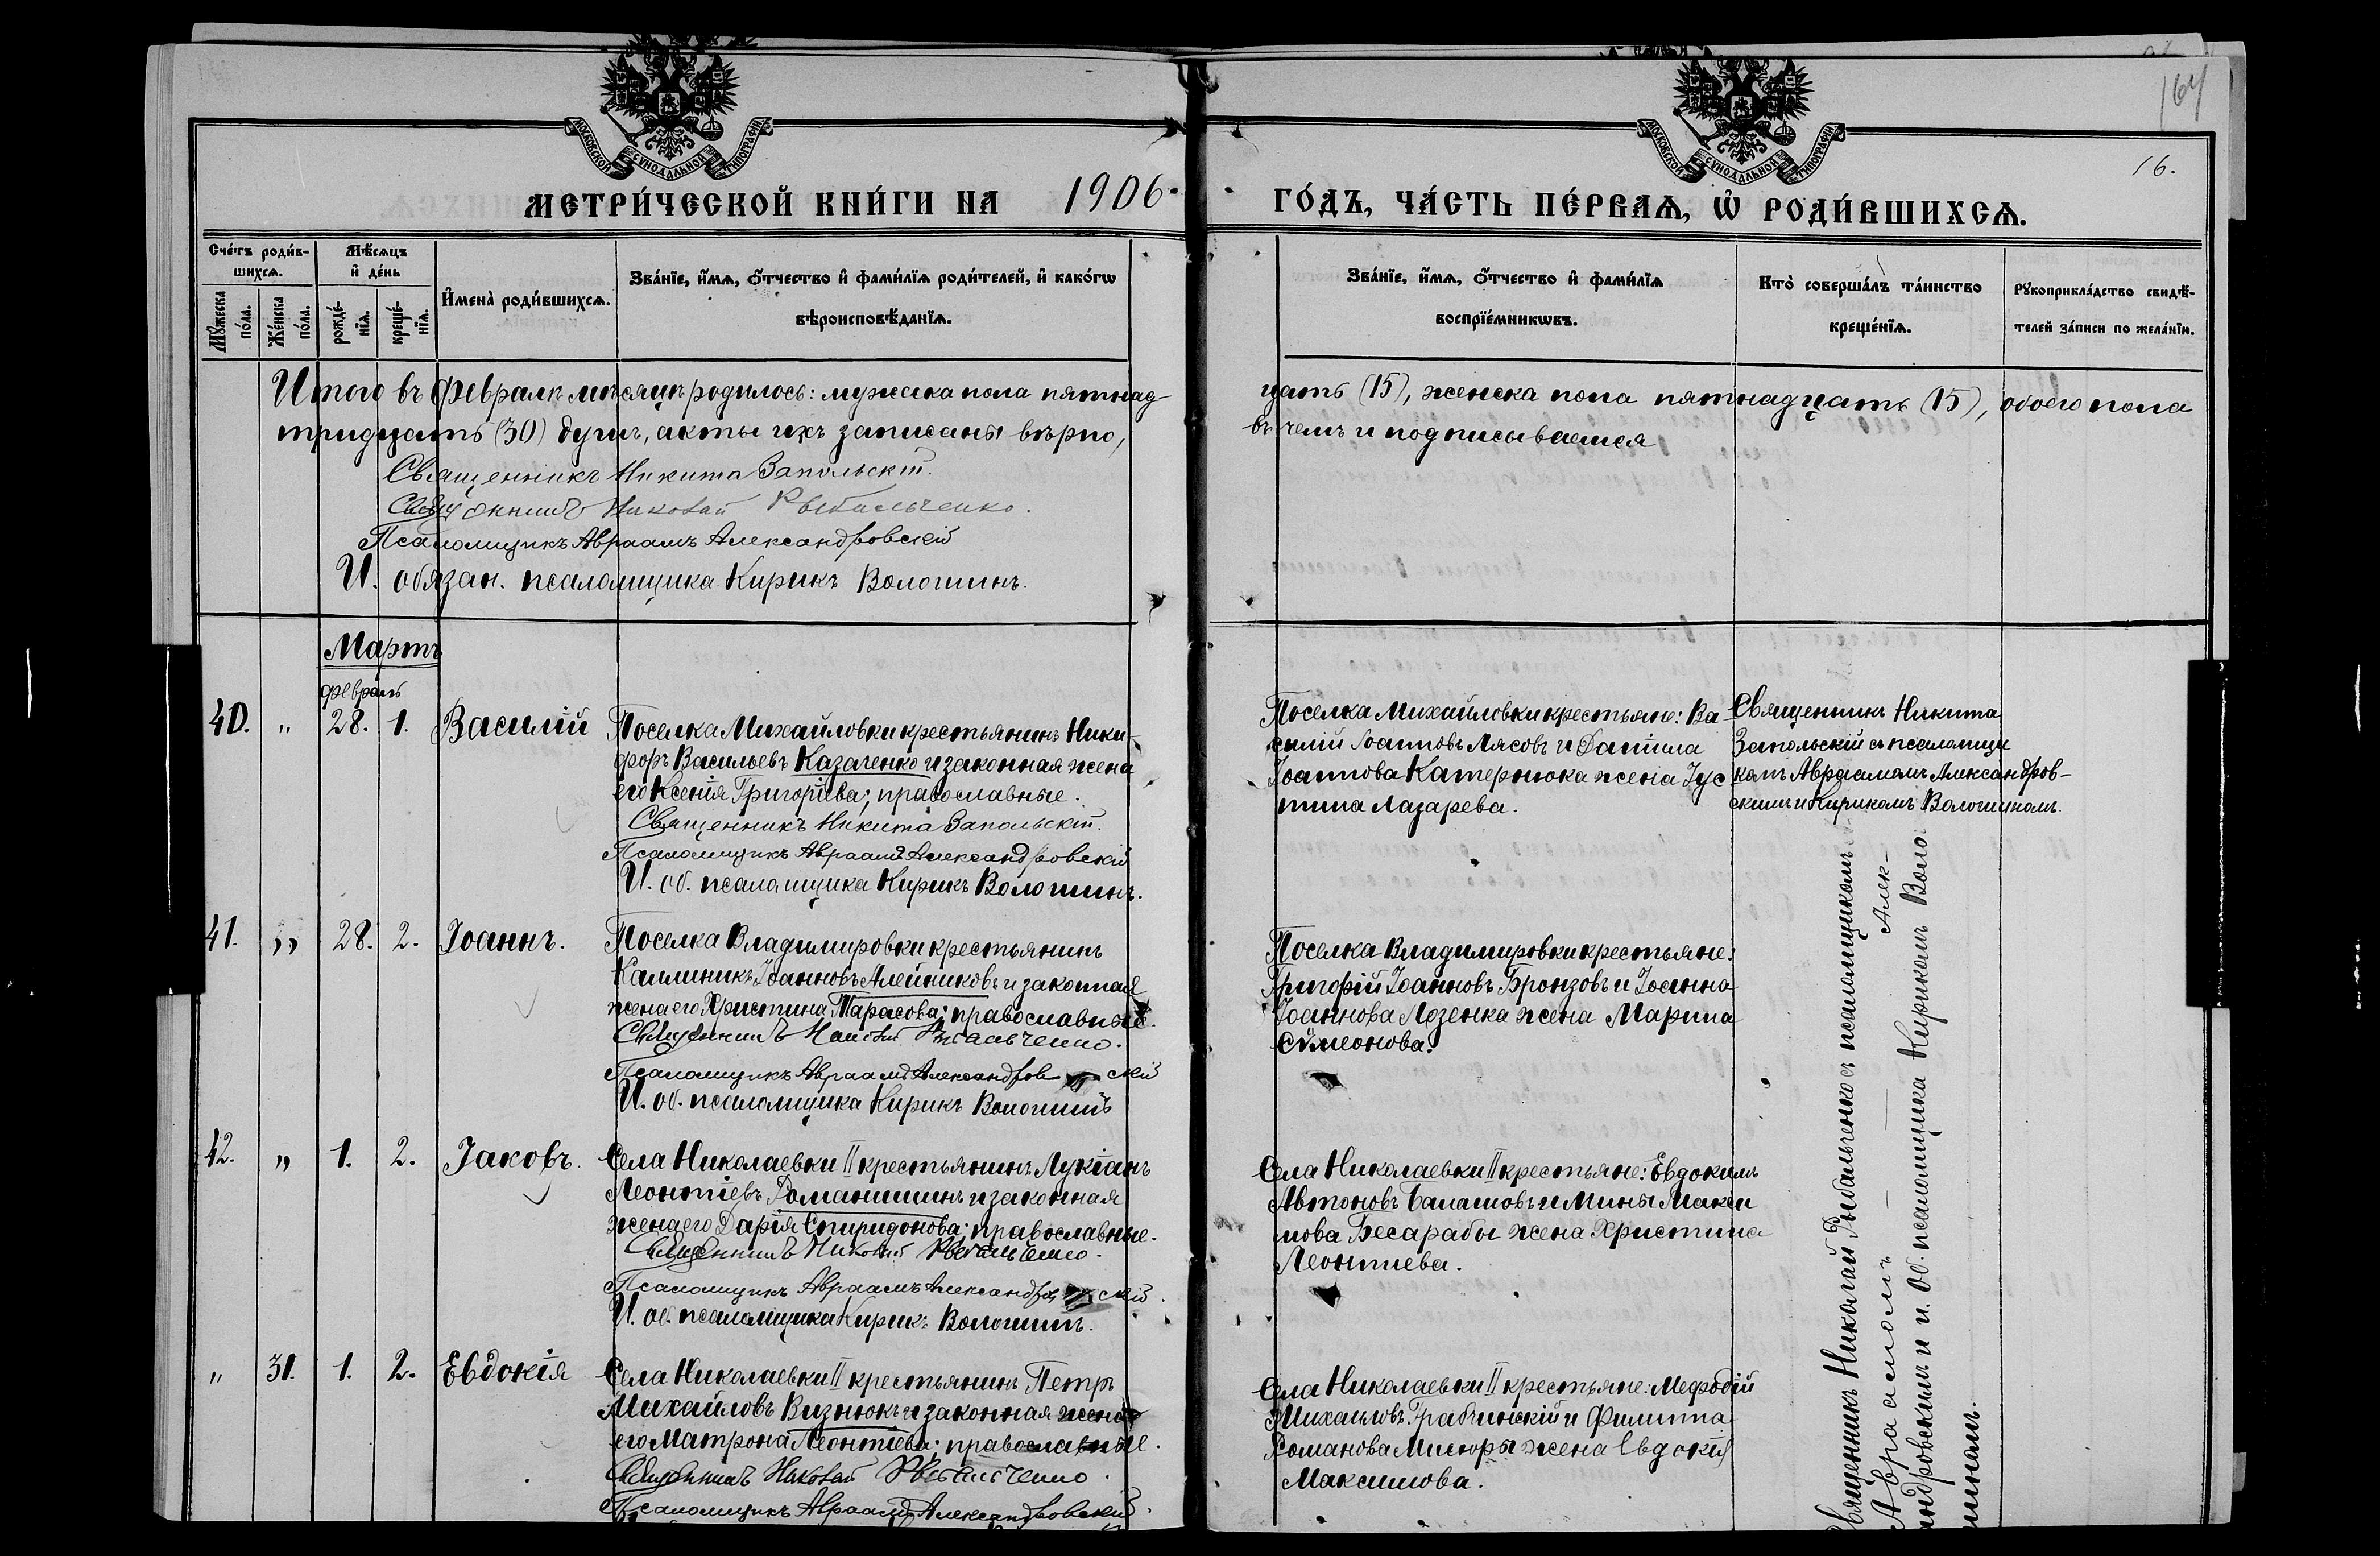 164
16.
МОСКОВСКОЙ СѴНОДАЛЬНОЙ ТИПОГРАФІИ
МОСКОВСКОЙ СѴНОДАЛЬНОЙ ТИПОГРАФІИ
МЕТРИ́ЧЕСКОЙ КНИ́ГИ НА 1906 ГО́ДЪ, ЧА́СТЬ ПЕ́РВАѦ, Ѽ РОДИ́ВШИХСѦ.
Сче́тъ роди́в-
шихсѧ.
Мꙋ́жеска по́ла.
Же́нска по́ла.
Мѣ́сѧцъ
и҆ де́нь
рожде́-нїѧ.
креще́-нїѧ.
И҆мена̀ роди́вшихсѧ.
Зва́нїе, и҆́мѧ, ѻ҆́тчество и҆ фами́лїѧ роди́телей, и҆ како́гѡ
вѣроисповѣ́данїѧ.
Зва́нїе, и҆́мѧ, ѻ҆́тчество и҆ фами́лїѧ
воспрїе́мникѡвъ.
Кто̀ соверша́лъ та́инство
креще́нїѧ.
Рꙋкоприкла́дство свидѣ́-
телей за́писи по жела́нїю.
Итого въ Февралѣ мѣсяцѣ родилось: мужеска пола пятнад-
цать (15), женска пола пятнадцать (15), обоего пола
тридцать (30) душъ, акты ихъ записаны вѣрно,
въ чемъ и подписываемся
Священникъ Никита Запольскій.
Священникъ Николай Рыбальченко.
Псаломщикъ Авраамъ Александровскій
И. обязан. псаломщика Кирикъ Волошинъ.
Мартъ
февраль
40. " 28. 1. Василій
Поселка Михайловки крестьянинъ Ники-
форъ Васильевъ Казаченко и законная жена
его Ксенія Григоріева; православные.
Священникъ Никита Запольскій.
Псаломщикъ Авраамъ Александровскій
И. об. псаломщика Кирикъ Волошинъ.
Поселка Михайловки крестьяне: Ва-
силій Іоанновъ Лясовъ и Даніила
Іоаннова Катернюка жена Іус
тина Лазарева.
Священникъ Никита
Запольскій съ псаломщи
комъ Авраамомъ Александров-
скимъ и Кирикомъ Волошиномъ.
41. " 28. 2. Іоаннъ.
Поселка Владимировки крестьянинъ
Каллиникъ Іоанновъ Алейниковъ и законная
жена его Христина Тарасова; православные.
Священникъ Николай Рыбальченко.
Псаломщикъ Авраамъ Александровскій
И. об. псаломщика Кирикъ Волошинъ
Поселка Владимировки крестьяне:
Григорій Іоанновъ Бронзовъ и Іоанна
Іоаннова Лозенка жена Марина
Сѵмеонова.
42. " 1. 2. Іаковъ.
Села Николаевки II крестьянинъ Лукіанъ
Леонтіевъ Романишинъ и законная
жена его Дарія Спиридонова; православные.
Священникъ Николай Рыбальченко.
Псаломщикъ Авраамъ Александровскій.
И. об. псаломщика Кирикъ Волошинъ.
Села Николаевки II крестьяне: Евдокимъ
Автоновъ Балашовъ и Мины Макси
мова Бесарабы жена Христина
Леонтиева.
" 31. 1. 2. Евдокія
Села Николаевки II крестьянинъ Петръ
Михайловъ Визнюкъ и законная жена
его Матрона Леонтіева; православные.
Священникъ Николай Рыбальченко.
Псаломщикъ Авраамъ Александровскій.
Села Николаевки II крестьяне: Мефодій
Михаиловъ Грабчинскій и Филиппа
Романова Мисюры жена Евдокія
Максимова.
Священникъ Николай Рыбальченко съ псаломщикомъ
Авраамомъ Алек-
андровскимъ и и. об. псаломщика Кирикомъ Воло
шиномъ.